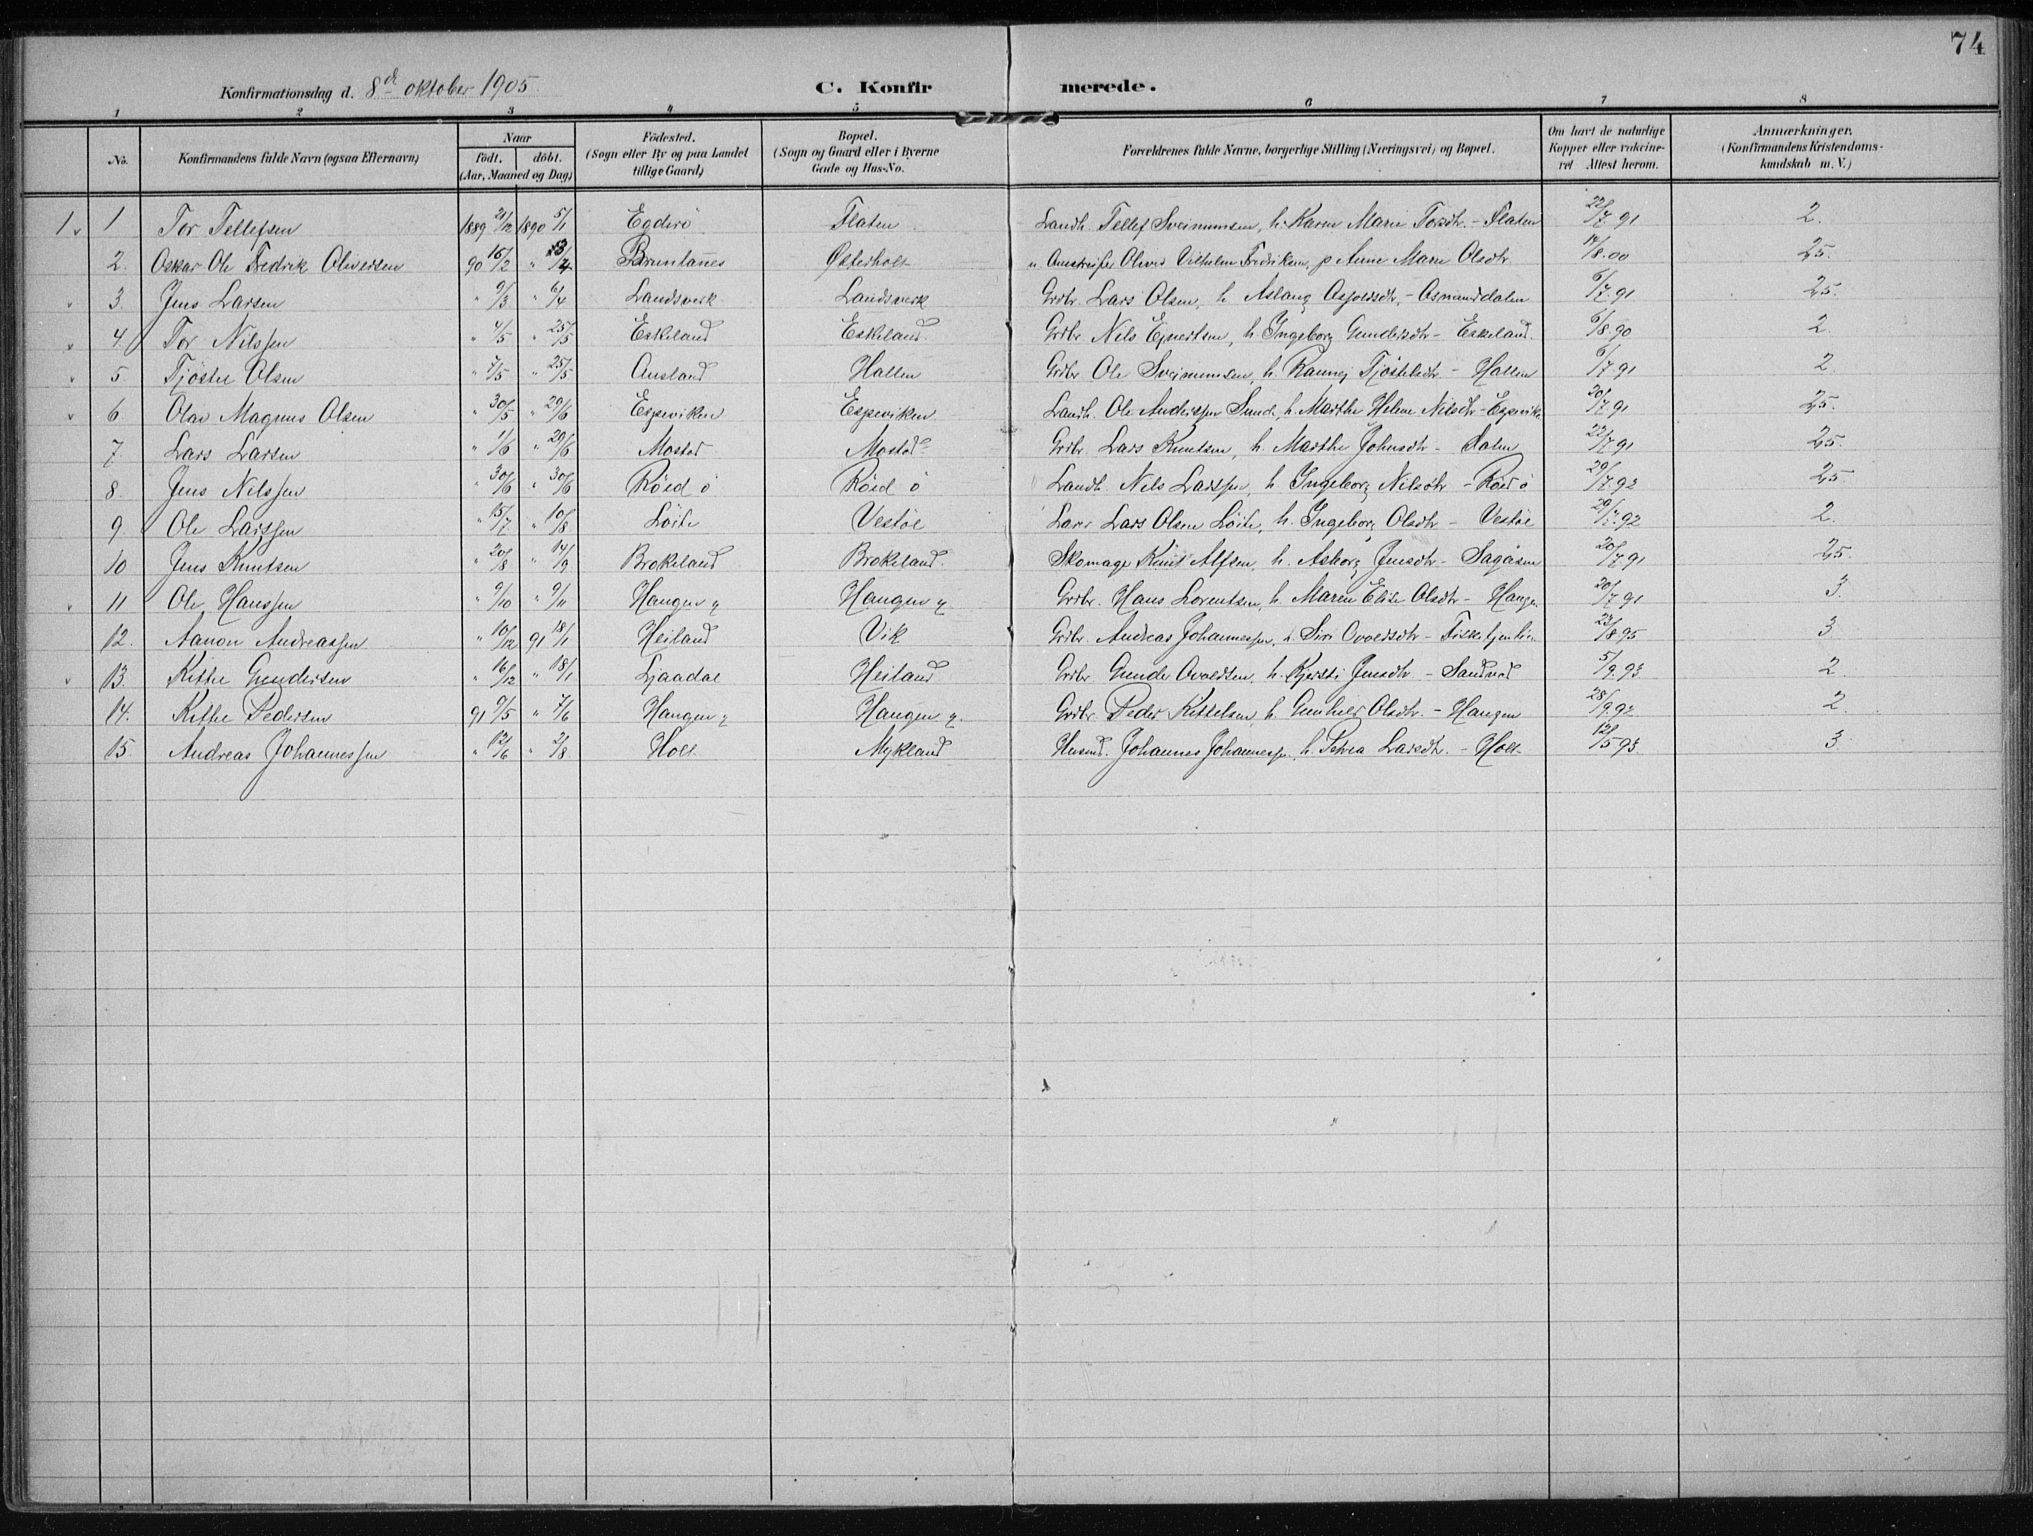 74
Konfirmationsdag d. 8de oktober 1905 C. Konfirmerede.
1 2 3 4 5 6 7 8
No. Konfirmandens fulde Navn (ogsaa Efternavn) Naar födt. döbt. (Aar, Maaned og Dag) Födested. (Sogn eller By og paa Landet tillige Gaard) Bopæl. (Sogn og Gaard eller i Byerne Gade og Hus-No. Forældrenes fulde Navne, borgerlige Stilling (Næringsvei) og Bopæl. Om havt de naturlige Kopper eller vaccineret Attest herom. Anmærkninger. (Konfirmandens Kristendomskundskab m. V.)
1 1 Tor Tellefsen 1889 21/12 1890 5/1 Egderö Flaten Landh. Tellef Sveinumsen, h. Karen Marie Torsdtr. - Flaten 22/7.91 2.
2. Oskar Ole Fredrik Oliversen 90 16/2 " 13/4 Brunlanes Østerholt Oliver Vilhelm Fredriksen, p Anne Marie Olsdtr. 14/8.00 2,5.
3. Jens Larsen " 9/3 " 6/4 Landsverk Landsverk Grdbr. Lars Olsen, h. Aslaug - Osmunddalen 6/7.91 2,5.
4. Tor Nilssen " 4/5 " 25/5 Eskeland Eskeland Grdbr Nils Evertsen, h. Ingeborg Gundersdtr - Eskeland. 6/8.90 2.
5 Tjöstel Olsen " 7/5 " 25/5 Ausland Hallen Grdbr Ole Sveinumsen, h. Rannei Tjöstelsdtr - Hallen 6/7.91 2.
6. Olav Magnus Olsen " 30/5 " 29/6 Espeviken Espeviken Landh. Ole Anderssen Sund, h. Marthe Helene Nilsdtr - Espevik. 20/7.91 2,5.
7. Lars Larsen " 11/6 " 29/6 Mostad Mostad Grdbr. Lars Knutsen, h. Marthe Johnsdtr - 22/7.91 2,5.
8. Jens Nilssen " 30/6 " 30/6 Röed ö Röed ö Landh. Nils Larssen, h Ingeborg Nilsdtr - Röed ö 29/7.92 2,5.
9 Ole Larssen " 15/7 " 10/8 Löite Vestöl Lars Olsen Löite, h. Ingeborg Olsdtr - Vestöl 29/7.92 2.
10 Jens Knutsen " 20/8 " 14/9 Brokeland Brokeland. Skomager Knut Alfsen, h. Asborg Jensdtr - Sagåsen 20/7.91 2,5.
11 Ole Hanssen " 9/10 " 9/11 Haugen y Haugen y. Grdbr. Hans Lorentsen, h. Maren Elise Olsdtr - Haugen 20/7.91 3.
12. Aanon Andreassen " 10/12 91 18/1 Heiland Vik Grdbr. Andreas Johannessen, h. Siri Ovoldsdtr - 23/8.95 3.
13. Kittel Gundersen " 16/12 " 18/1 Ljaadal Heiland Grdbr. Gunder Ovoldsen, h. Kjersti Jensdtr - Sandnes 5/9.93 2.
14. Kittel Pedersen 91 9/5 " 7/6 Haugen y Haugen y. Grdbr. Peder Kittelsen, h. Gunhild Olsdtr. - Haugen 28/9.92 2.
15 Andreas Johannessen " 12/6 " 2/8 Holt. Mykland Husmd. Johannes Johannessen, h. Petrea Larsdtr. - Holt 12/5.93 3.